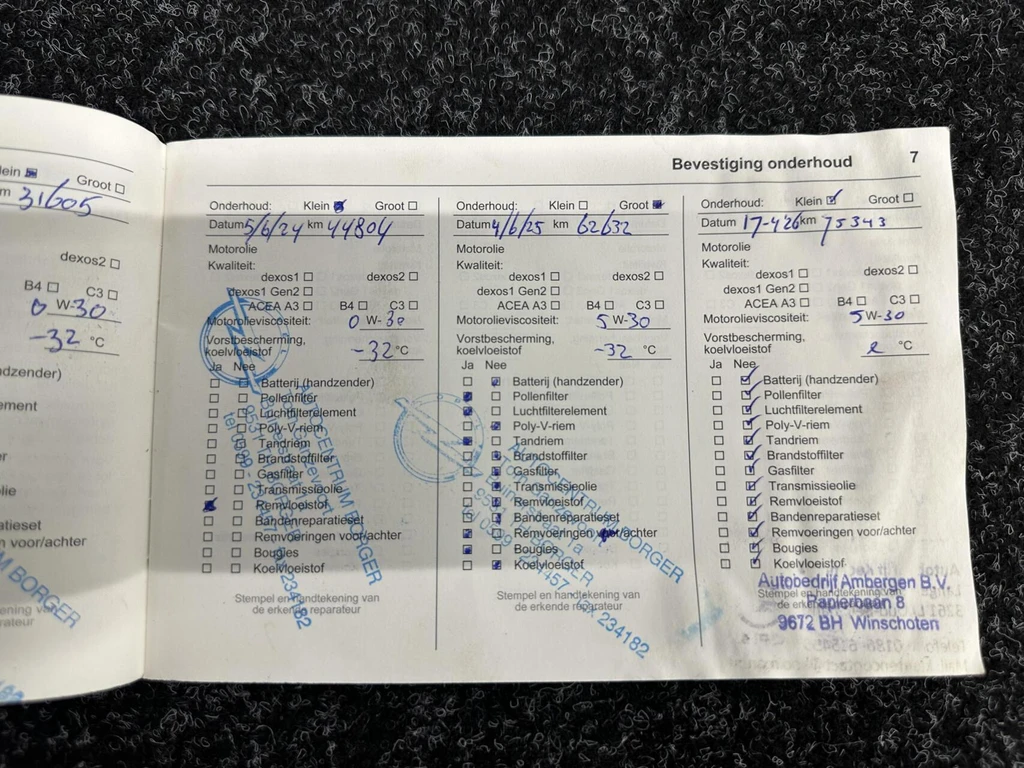 Bevestiging onderhoud 7
lein Groot
m 31605
dexos2
B4 C3
0 W-30
-32 °C
dzender)
ement
er
lie
atieset
n voor/achter
kening van
rateur
M BORGER
Onderhoud: Klein Groot
Datum 5/6/24 km 44804
Motorolie
Kwaliteit:
dexos1 dexos2
dexos1 Gen2
ACEA A3 B4 C3
Motorolieviscositeit: 0 W-30
Vorstbescherming,
koelvloeistof -32 °C
Ja Nee
Batterij (handzender)
Pollenfilter
Luchtfilterelement
Poly-V-riem
Tandriem
Brandstoffilter
Gasfilter
Transmissieolie
Remvloeistof
Bandenreparatieset
Remvoeringen voor/achter
Bougies
Koelvloeistof
Stempel en handtekening van
de erkende reparateur
CENTRUM BORGER
234182
Onderhoud: Klein Groot
Datum 4/6/25 km 62632
Motorolie
Kwaliteit:
dexos1 dexos2
dexos1 Gen2
ACEA A3 B4 C3
Motorolieviscositeit: 5 W-30
Vorstbescherming,
koelvloeistof -32 °C
Ja Nee
Batterij (handzender)
Pollenfilter
Luchtfilterelement
Poly-V-riem
Tandriem
Brandstoffilter
Gasfilter
Transmissieolie
Remvloeistof
Bandenreparatieset
Remvoeringen voor/achter
Bougies
Koelvloeistof
Stempel en handtekening van
de erkende reparateur
CENTRUM BORGER
234182
Onderhoud: Klein Groot
Datum 17-426 km 75343
Motorolie
Kwaliteit:
dexos1 dexos2
dexos1 Gen2
ACEA A3 B4 C3
Motorolieviscositeit: 5 W-30
Vorstbescherming,
koelvloeistof °C
Ja Nee
Batterij (handzender)
Pollenfilter
Luchtfilterelement
Poly-V-riem
Tandriem
Brandstoffilter
Gasfilter
Transmissieolie
Remvloeistof
Bandenreparatieset
Remvoeringen voor/achter
Bougies
Koelvloeistof
Stempel en handtekening van
de erkende
Autobedrijf Ambergen B.V.
Papierbaan 8
9672 BH Winschoten